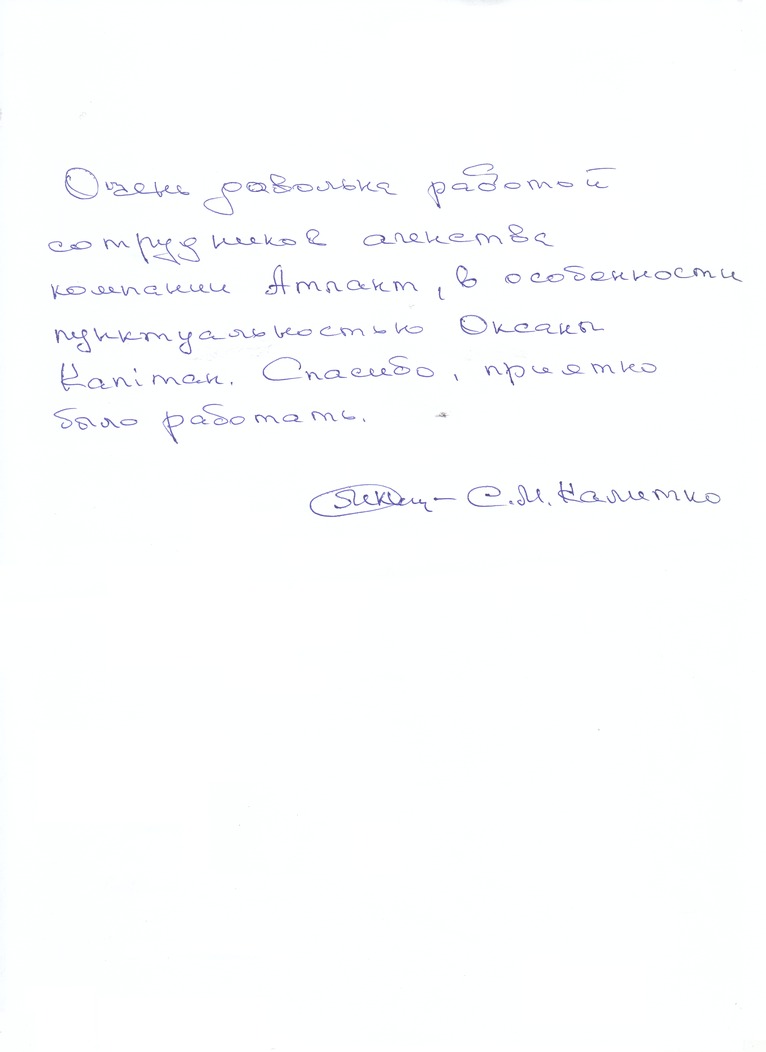 Очень давольна работой
сотрудников агенства
компании Атлант, в особенности
пунктуальностью Оксаны
Капiтан. Спасибо, приятно
было работать.
С.М. Калитко